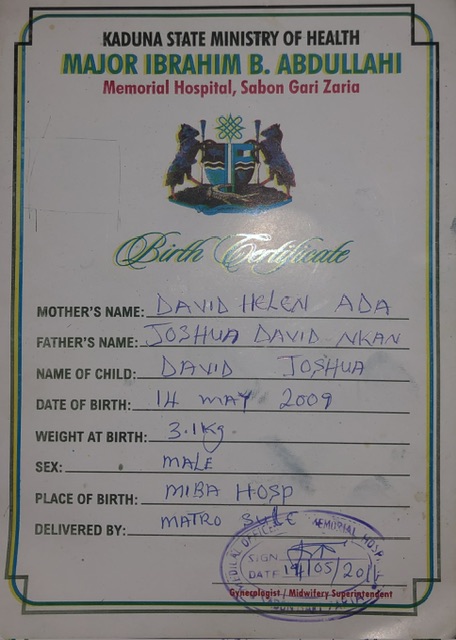 KADUNA STATE MINISTRY OF HEALTH
MAJOR IBRAHIM B. ABDULLAHI
Memorial Hospital, Sabon Gari Zaria
Birth Certificate
MOTHER'S NAME: DAVID HELEN ADA
FATHER'S NAME: JOSHUA DAVID NKAN
NAME OF CHILD: DAVID JOSHUA
DATE OF BIRTH: 14 MAY 2009
WEIGHT AT BIRTH: 3.1kg
SEX: MALE
PLACE OF BIRTH: MIBA HOSP
DELIVERED BY: MATRO SULE
MEDICAL OFFICE MEMORIAL HOSP
SIGN
DATE /05/
Gynecologist / Midwifery Superintendent